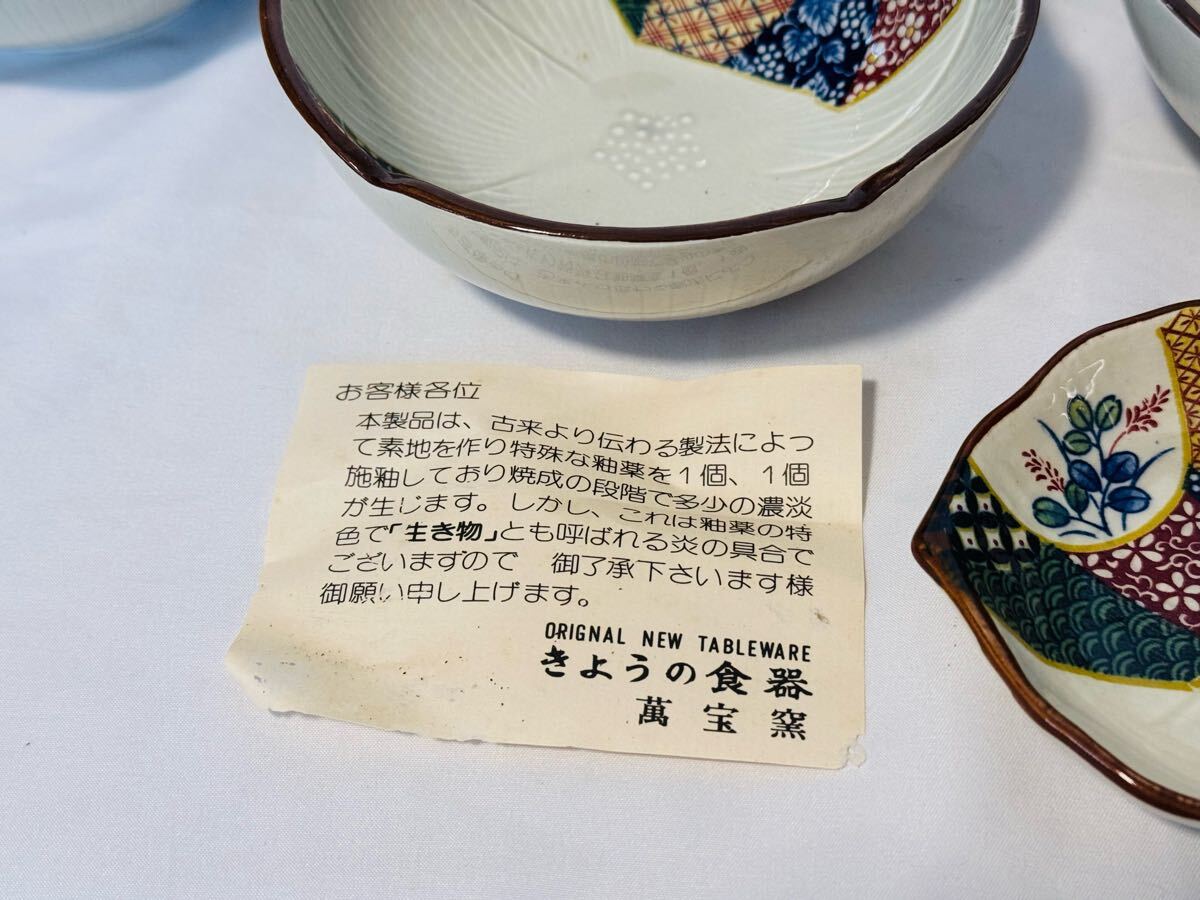 お客様各位
本製品は、古来より伝わる製法によっ
て素地を作り特殊な釉薬を1個、1個
施釉しており焼成の段階で多少の濃淡
が生じます。しかし、これは釉薬の特
色で「生き物」とも呼ばれる炎の具合で
ございますので　御了承下さいます様
御願い申し上げます。
ORIGNAL NEW TABLEWARE
きようの食器
萬宝窯